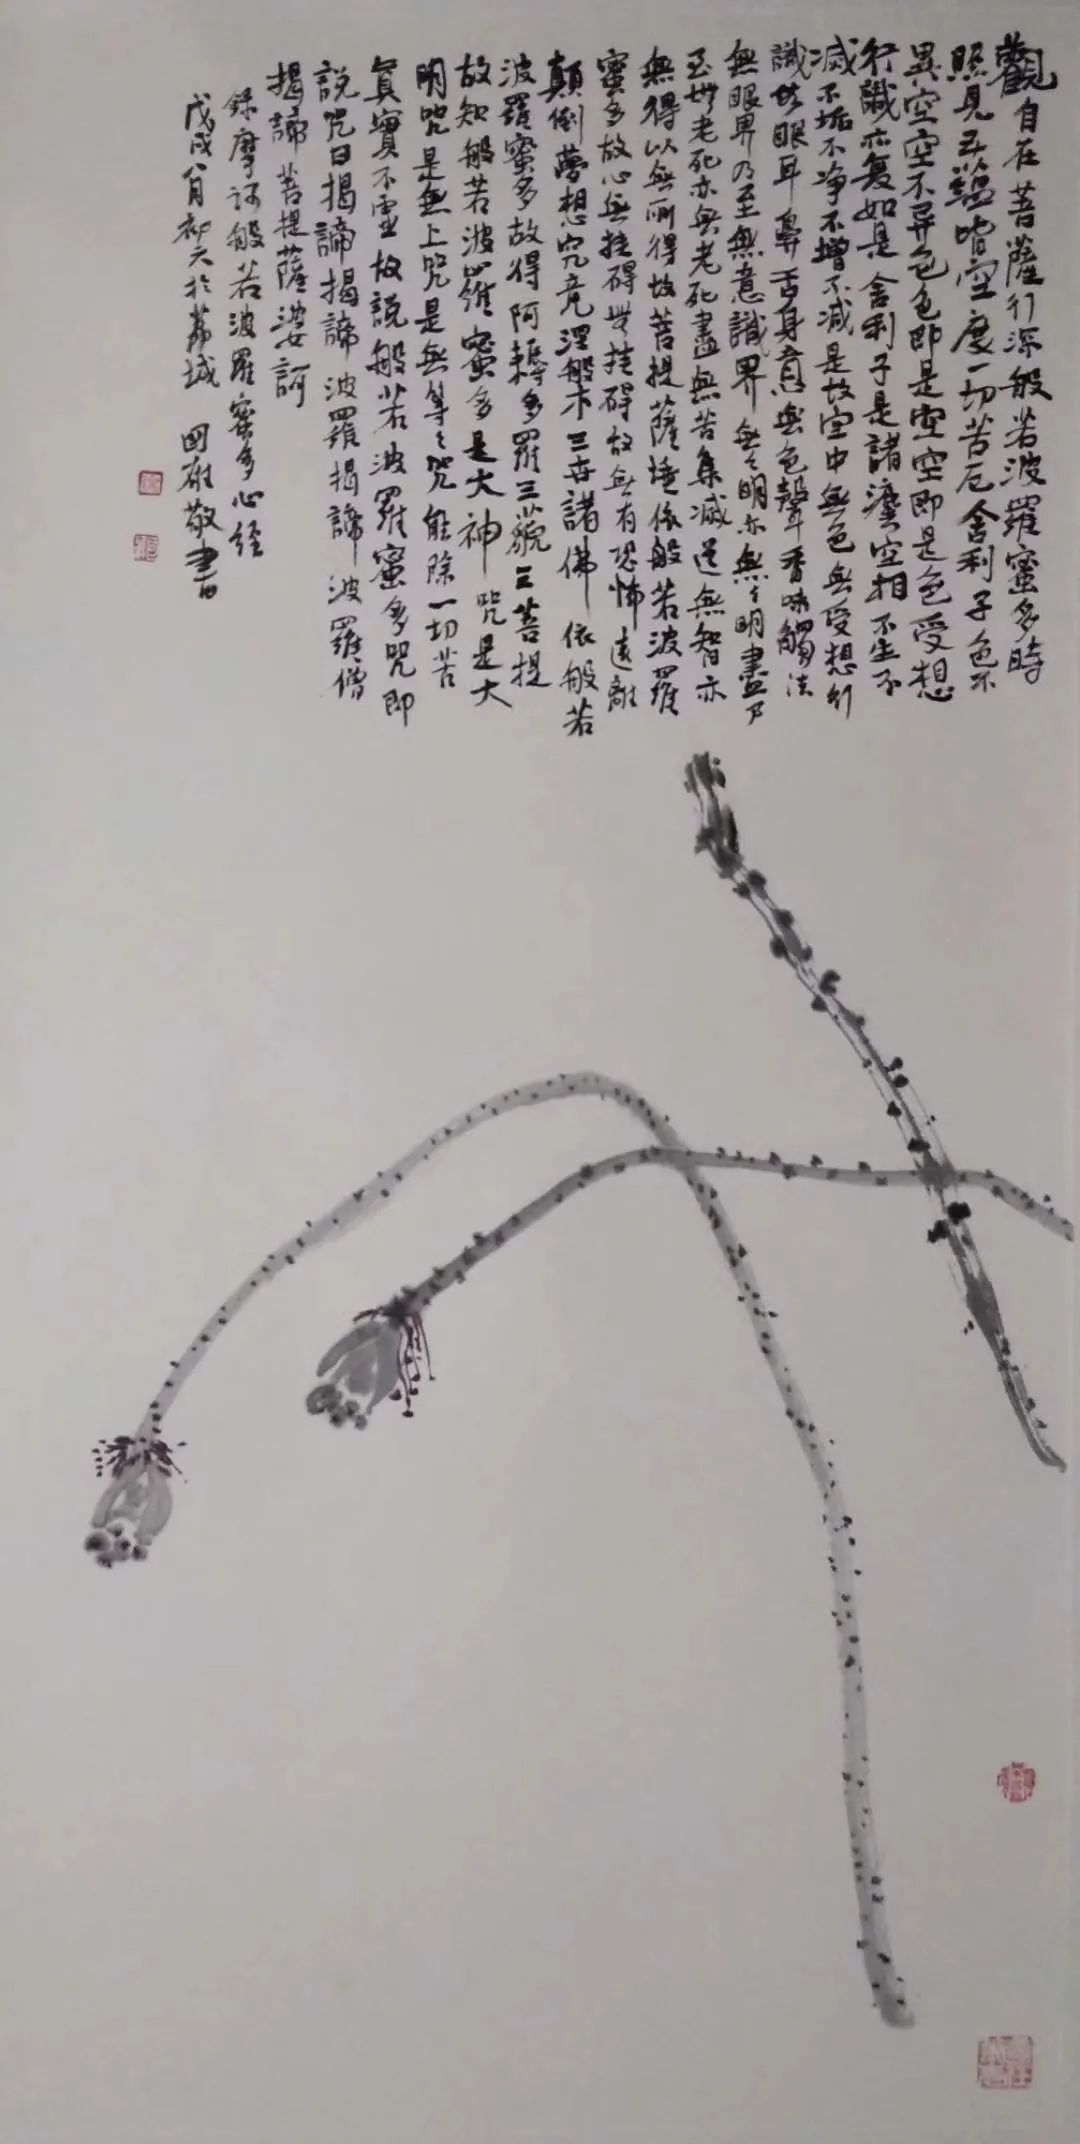 觀自在菩薩行深般若波羅蜜多時
照見五蘊皆空度一切苦厄舍利子色不
異空空不异色色即是空空即是色受想
行識亦复如是舍利子是諸法空相不生不
滅不垢不净不增不减是故空中無色無受想行
識無眼耳鼻舌身意無色聲香味觸法
無眼界乃至無意識界無無明亦無無明盡乃
至無老死亦無老死盡無苦集滅道無智亦
無得以無所得故菩提薩埵依般若波羅
蜜多故心無挂碍無挂碍故無有恐怖遠離
顛倒夢想究竟涅般木三世諸佛依般若
波羅蜜多故得阿耨多羅三藐三菩提
故知般若波羅蜜多是大神咒是大
明咒是無上咒是無等等咒能除一切苦
真實不虛故說般若波羅蜜多咒即
説咒曰揭諦揭諦波羅揭諦波羅僧
揭諦菩提薩婆訶
錄摩訶般若波羅蜜多心經
戊戌八月初六於
國雄敬書